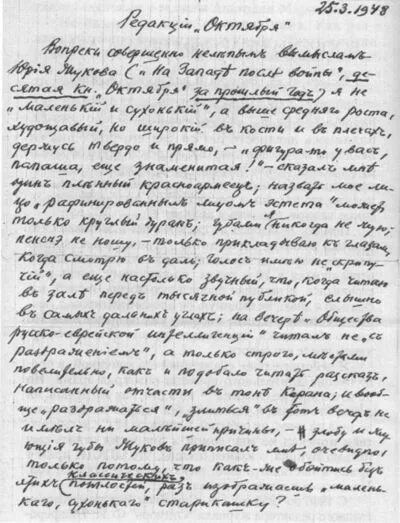 25.3.1948
Редакціи „Октября"
Вопреки совершенно нелепымъ вымысламъ
Юрія Жукова („На Западѣ послѣ войны", де-
сятая кн. „Октября" за прошлый годъ) я не
„маленькій и сухонькій", а выше средняго роста,
худощавый, но широкій въ кости и въ плечахъ,
держусь твердо и прямо, — „фигура-то у васъ,
папаша, еще знаменитая!" — сказалъ мнѣ
одинъ плѣнный красноармеецъ; назвать мое ли-
цо „рафинированнымъ лицомъ эстета" можетъ
только круглый дуракъ; губами я никогда не жую;
пенснэ не ношу, — только прикладываю къ глазамъ,
когда смотрю въ даль; голосъ имѣю не „скрипу-
чій", а еще настолько звучный, что, когда читаю
въ залѣ передъ тысячной публикой, слышно
въ самыхъ дальнихъ углахъ; на вечерѣ „Общества
русско-еврейской интеллигенціи" читалъ не „съ
раздраженіемъ", а только строго, мѣстами
повелительно, какъ и подобало читать разсказъ,
написанный отчасти въ тонѣ Корана; и вооб-
ще „раздражаться", „злиться" въ этотъ вечеръ не
имѣлъ ни малѣйшей причины, — злобу и жу-
ющія губы Жуковъ приписалъ мнѣ, очевидно,
только потому, что какъ-же обойтись безъ
этихъ классическихъ пошлостей, разъ изображаешь „малень-
каго, сухонькаго" старикашку?